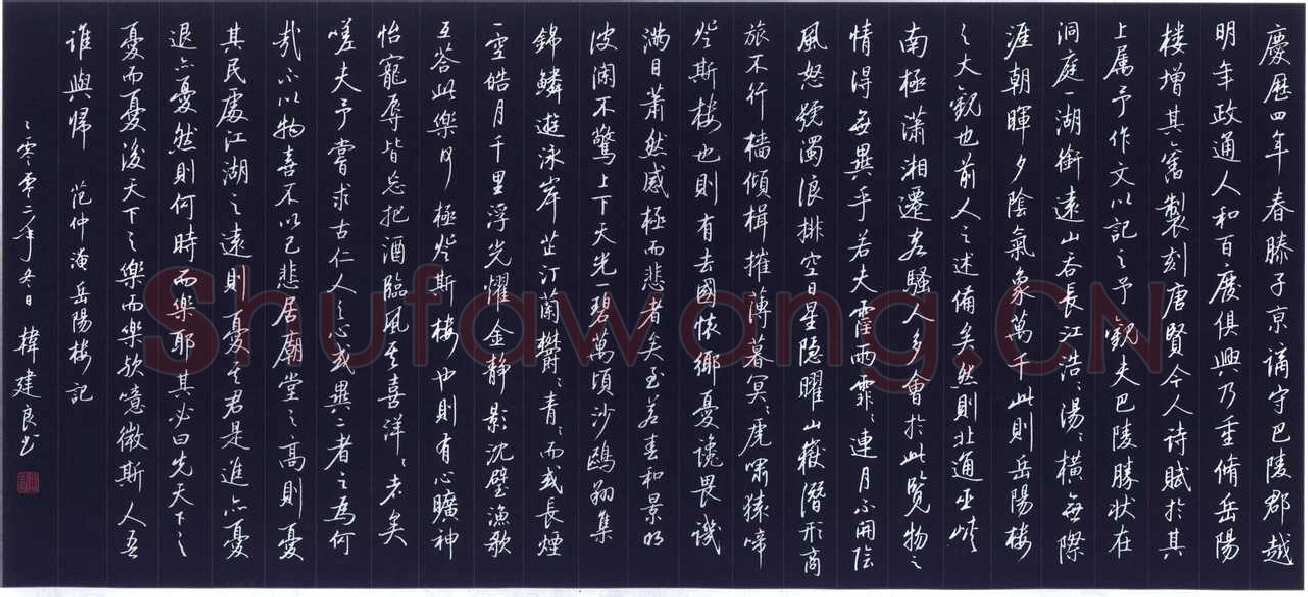 慶歷四年春滕子京謫守巴陵郡越
明年政通人和百廢俱興乃重脩岳陽
樓增其舊製刻唐賢今人詩賦於其
上属予作文以記之予觀夫巴陵勝狀在
洞庭一湖銜遠山吞長江浩〻湯〻橫無際
涯朝暉夕陰氣象萬千此則岳陽樓
之大觀也前人之述備矣然則北通巫峽
南極瀟湘遷客騷人多會於此覽物之
情得無異乎若夫霪雨霏〻連月不開陰
風怒號濁浪排空日星隐曜山嶽潛形商
旅不行檣傾楫摧薄暮冥〻虎嘯猿啼
登斯樓也則有去國懷鄉憂讒畏譏
滿目蕭然感極而悲者矣至若春和景明
波瀾不驚上下天光一碧萬頃沙鷗翔集
錦鱗遊泳岸芷汀蘭鬱〻青〻而或長煙
一空皓月千里浮光耀金靜影沈璧漁歌
互答此樂何極登斯樓也則有心曠神
怡寵辱皆忘把酒臨風其喜洋〻者矣
嗟夫予嘗求古仁人之心或異二者之為何
哉不以物喜不以己悲居廟堂之高則憂
其民處江湖之遠則憂其君是進亦憂
退亦憂然則何時而樂耶其必曰先天下之
憂而憂後天下之樂而樂歟噫微斯人吾
誰與歸 范仲淹岳陽樓記
二零零二年冬日 建良书
Shufawang.CN